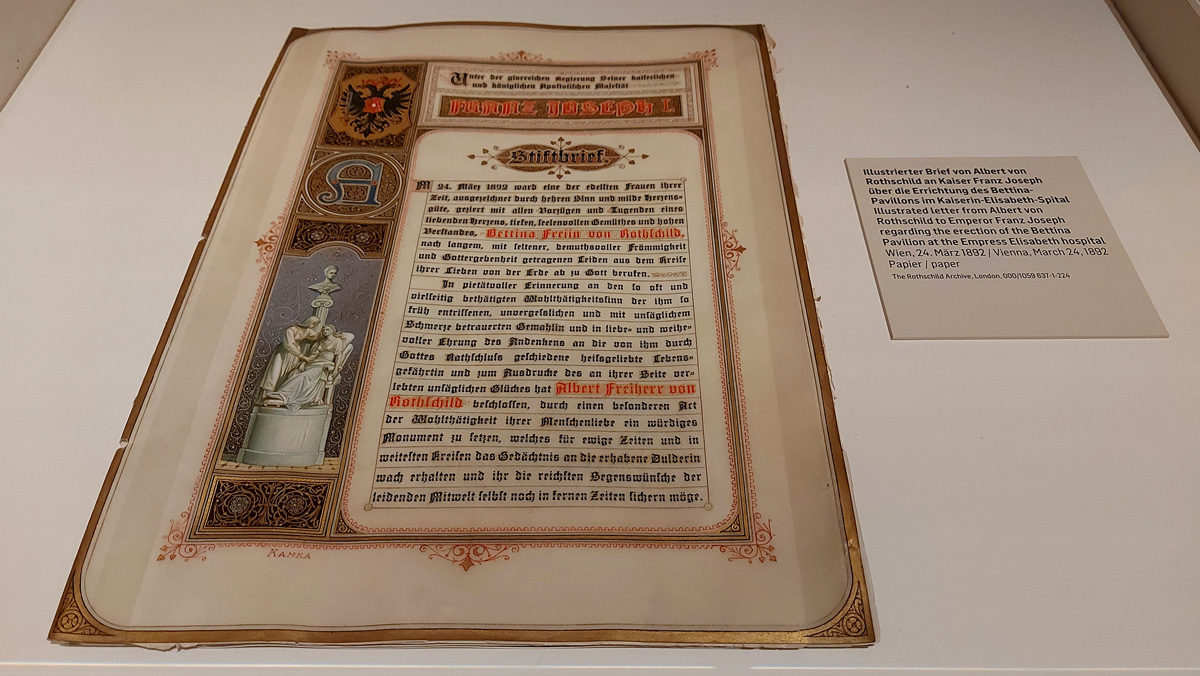 Unter der glorreichen Regierung Seiner kaiserlichen
und königlichen Apostolischen Majestät
FRANZ JOSEPH I.
Stiftbrief.
A
M 24. März 1892 ward eine der edelsten Frauen ihrer
Zeit, ausgezeichnet durch hehren Sinn und milde Herzens=
güte, geziert mit allen Vorzügen und Tugenden eines
liebenden Herzens, tiefen, seelenvollen Gemüthes und hohen
Verstandes, Bettina Freiin von Rothschild,
nach langem, mit seltener, demuthsvoller Frömmigkeit
und Gottergebenheit getragenen Leiden aus dem Kreise
ihrer Lieben von der Erde ab zu Gott berufen.
In pietätvoller Erinnerung an den so oft und
vielseitig bethätigten Wohlthätigkeitssinn der ihm so
früh entrissenen, unvergesslichen und mit unsäglichem
Schmerze betrauerten Gemahlin und in liebe= und weihe=
voller Ehrung des Andenkens an die von ihm durch
Gottes Rathschluss geschiedene heissgeliebte Lebens=
gefährtin und zum Ausdrucke des an ihrer Seite ver=
lebten unsäglichen Glückes hat Albert Freiherr von
Rothschild beschlossen, durch einen besonderen Act
der Wohlthätigkeit ihrer Menschenliebe ein würdiges
Monument zu setzen, welches für ewige Zeiten und in
weitesten Kreisen das Gedächtnis an die erhabene Dulderin
wach erhalten und ihr die reichsten Segenswünsche der
leidenden Mitwelt selbst noch in fernen Zeiten sichern möge.
KANKA
Illustrierter Brief von Albert von
Rothschild an Kaiser Franz Joseph
über die Errichtung des Bettina-
Pavillons im Kaiserin-Elisabeth-Spital
Illustrated letter from Albert von
Rothschild to Emperor Franz Joseph
regarding the erection of the Bettina
Pavilion at the Empress Elisabeth hospital
Wien, 24. März 1892 / Vienna, March 24, 1892
Papier / paper
The Rothschild Archive, London, 000/1059 637-1-224